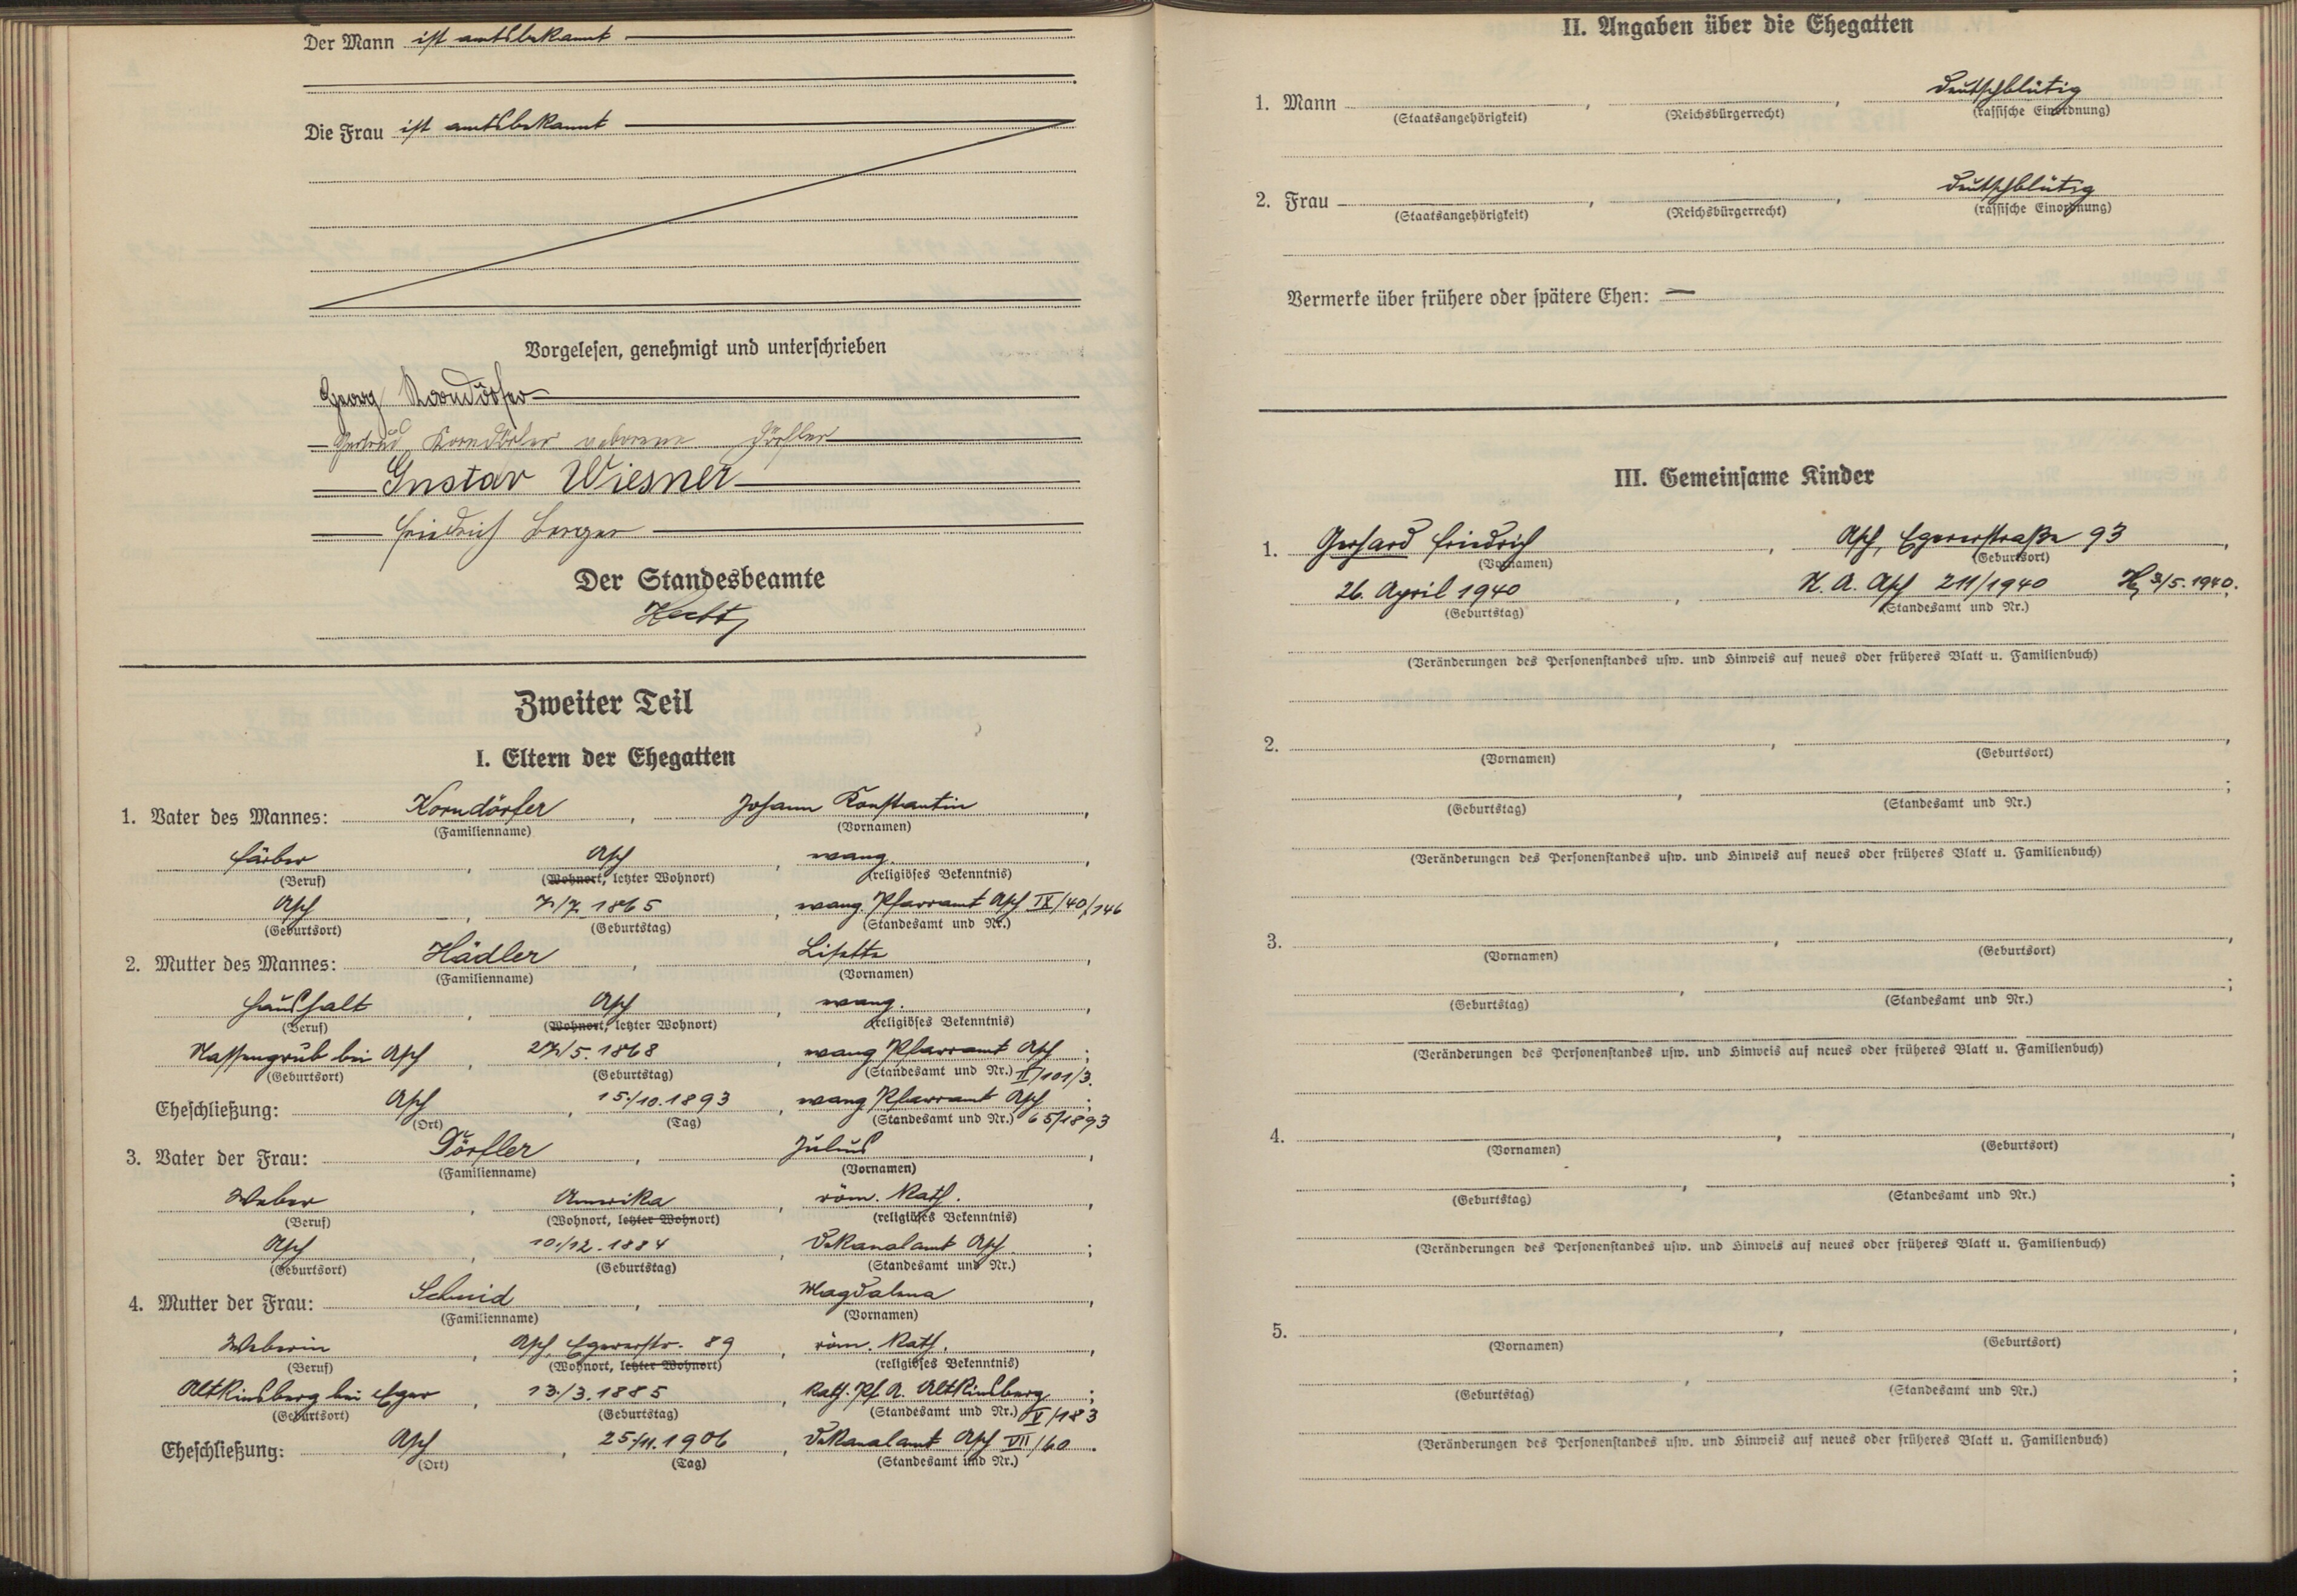 Der Mann ist amtsbekannt
Die Frau ist amtsbekannt
Vorgelesen, genehmigt und unterschrieben
Georg Korndörfer
Gertrud Korndörfer geborene Dörfler
Gustav Wiesner
Friedrich Berger
Der Standesbeamte
Zweiter Teil
I. Eltern der Ehegatten
1. Vater des Mannes: Korndörfer, Johann Konstantin,
(Familienname) (Vornamen)
Färber, Asch, evang.,
(Beruf) (Wohnort, letzter Wohnort) (religiöses Bekenntnis)
Asch, 7./7. 1865, evang. Pfarramt Asch IX/40/146
(Geburtsort) (Geburtstag) (Standesamt und Nr.)
2. Mutter des Mannes: Hädler, Lisette,
(Familienname) (Vornamen)
Haushalt, Asch, evang.,
(Beruf) (Wohnort, letzter Wohnort) (religiöses Bekenntnis)
Nassengrub bei Asch, 27./5. 1868, evang Pfarramt Asch;
(Geburtsort) (Geburtstag) (Standesamt und Nr.) II/101/3.
Eheschließung: Asch, 15./10. 1893, evang Pfarramt Asch;
(Ort) (Tag) (Standesamt und Nr.) 65/1893
3. Vater der Frau: Dörfler, Julius,
(Familienname) (Vornamen)
Weber, Amerika, röm. kath.,
(Beruf) (Wohnort, letzter Wohnort) (religiöses Bekenntnis)
Asch, 10./12. 1884, Dekanalamt Asch;
(Geburtsort) (Geburtstag) (Standesamt und Nr.)
4. Mutter der Frau: Schmid, Magdalena,
(Familienname) (Vornamen)
Weberin, Asch, Egererstr. 89, röm. kath.,
(Beruf) (Wohnort, letzter Wohnort) (religiöses Bekenntnis)
Altkinsberg bei Eger, 13./3. 1885, kath. Pf. A. Altkinsberg;
(Geburtsort) (Geburtstag) (Standesamt und Nr.) V/183
Eheschließung: Asch, 25./11. 1906, Dekanalamt Asch VII/60.
(Ort) (Tag) (Standesamt und Nr.)
II. Angaben über die Ehegatten
1. Mann , , deutschblütig
(Staatsangehörigkeit) (Reichsbürgerrecht) (rassische Einordnung)
2. Frau , , deutschblütig
(Staatsangehörigkeit) (Reichsbürgerrecht) (rassische Einordnung)
Vermerke über frühere oder spätere Ehen: —
III. Gemeinsame Kinder
1. Gerhard Friedrich, Asch, Egererstraße 93,
(Vornamen) (Geburtsort)
26. April 1940, St. A. Asch 211/1940 3/5. 1940.;
(Geburtstag) (Standesamt und Nr.)
(Veränderungen des Personenstandes usw. und Hinweis auf neues oder früheres Blatt u. Familienbuch)
2. , ,
(Vornamen) (Geburtsort)
, ;
(Geburtstag) (Standesamt und Nr.)
(Veränderungen des Personenstandes usw. und Hinweis auf neues oder früheres Blatt u. Familienbuch)
3. , ,
(Vornamen) (Geburtsort)
, ;
(Geburtstag) (Standesamt und Nr.)
(Veränderungen des Personenstandes usw. und Hinweis auf neues oder früheres Blatt u. Familienbuch)
4. , ,
(Vornamen) (Geburtsort)
, ;
(Geburtstag) (Standesamt und Nr.)
(Veränderungen des Personenstandes usw. und Hinweis auf neues oder früheres Blatt u. Familienbuch)
5. , ,
(Vornamen) (Geburtsort)
, ;
(Geburtstag) (Standesamt und Nr.)
(Veränderungen des Personenstandes usw. und Hinweis auf neues oder früheres Blatt u. Familienbuch)